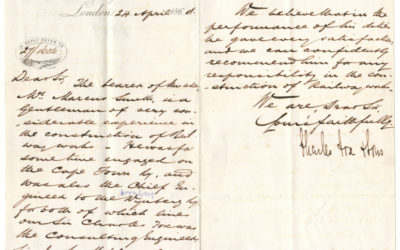 London, 24 April 186
27/1604
Dear Sir, The bearer of
Mr. Marcus Smith, is a
Gentleman of very con-
siderable experience in
the construction of Rail
way works - He was for
some time engaged on
the Cape Town Ry, and
was also the Chief En-
gineer to the Wynberg Ry
for both of which lines
our Sir Charles Fox was
the Consulting Engineer
We believe that in the
performance of his duties
he gave every satisfaction
and we can confidently
recommend him for any
responsibility in the con-
struction of Railway works.
We are, Dear Sir,
Yours faithfully
Charles Fox & Sons